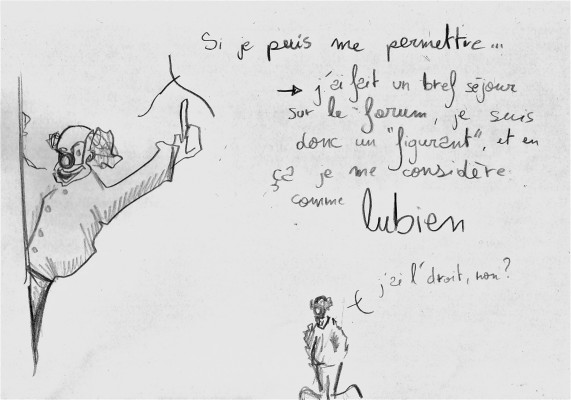 Si je puis me permettre...
→ j'ai fait un bref séjour
sur le forum, je suis
donc un "figurant", et en
ça je me considère
comme lubien
j'ai l'droit, non?